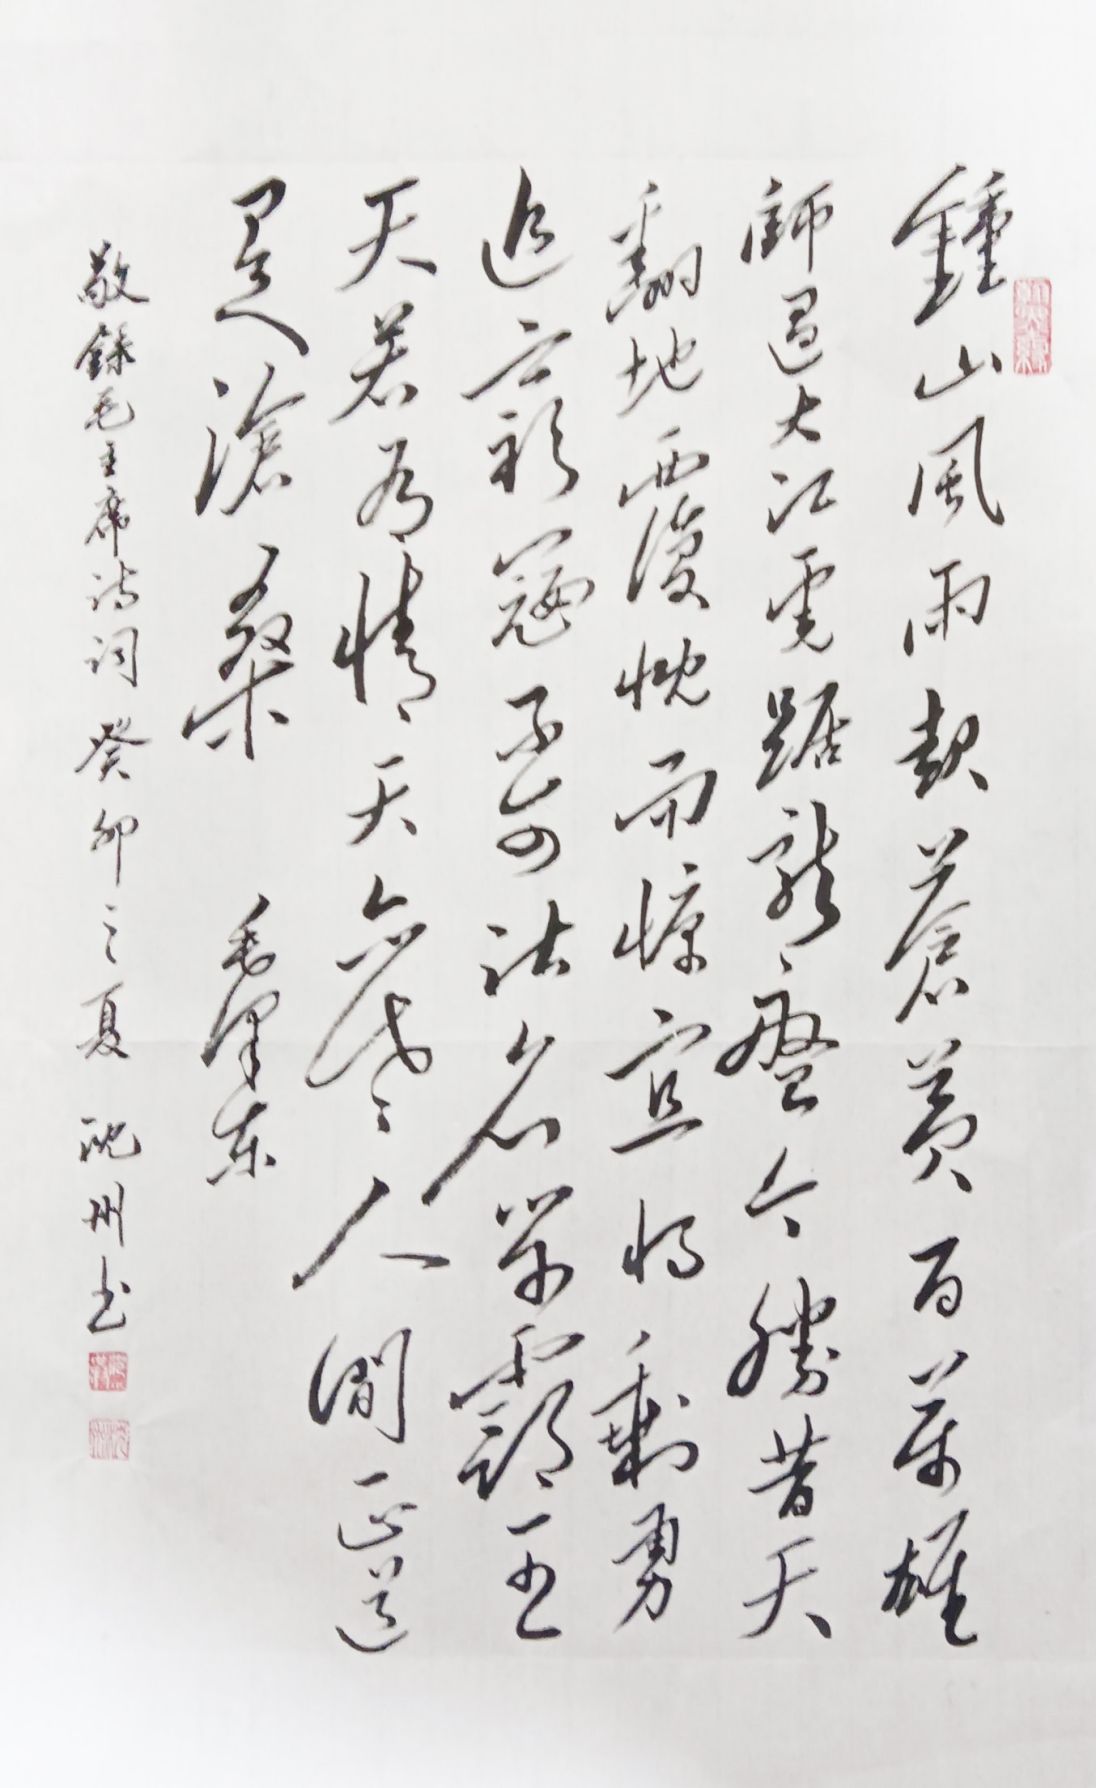 鍾山風雨起蒼黃百萬雄
師過大江虎踞龍盤今勝昔天
翻地覆慨而慷宜將剩勇
追窮寇不可沽名學霸王
天若有情天亦老人間正道
是滄桑 毛澤東
敬錄毛主席詩詞 癸卯之夏 沈州书